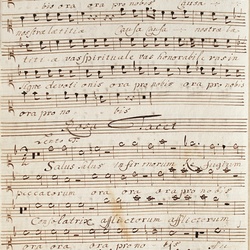 bis ora ora pro nobis causa
nostræ lætitiæ causa causa nostræ læ
titiæ vas spirituale vas honorabile vas in
signe devotionis ora pro nobis ora pro no
ora pro no bis
Rosa Tacet
Lento
Salus salus infirmorum Refugium
peccatorum ora ora ora pro nobis
Consolatrix afflictorum afflictorum
ora ora